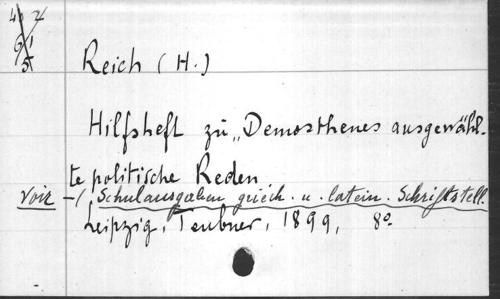 Reich (H.)
Hilfsheft zu „Demosthenes ausgewähl-
te politische Reden
voir — (Schulausgaben griech. u. latein. Schriftstell.
Leipzig, Teubner, 1899, 8º